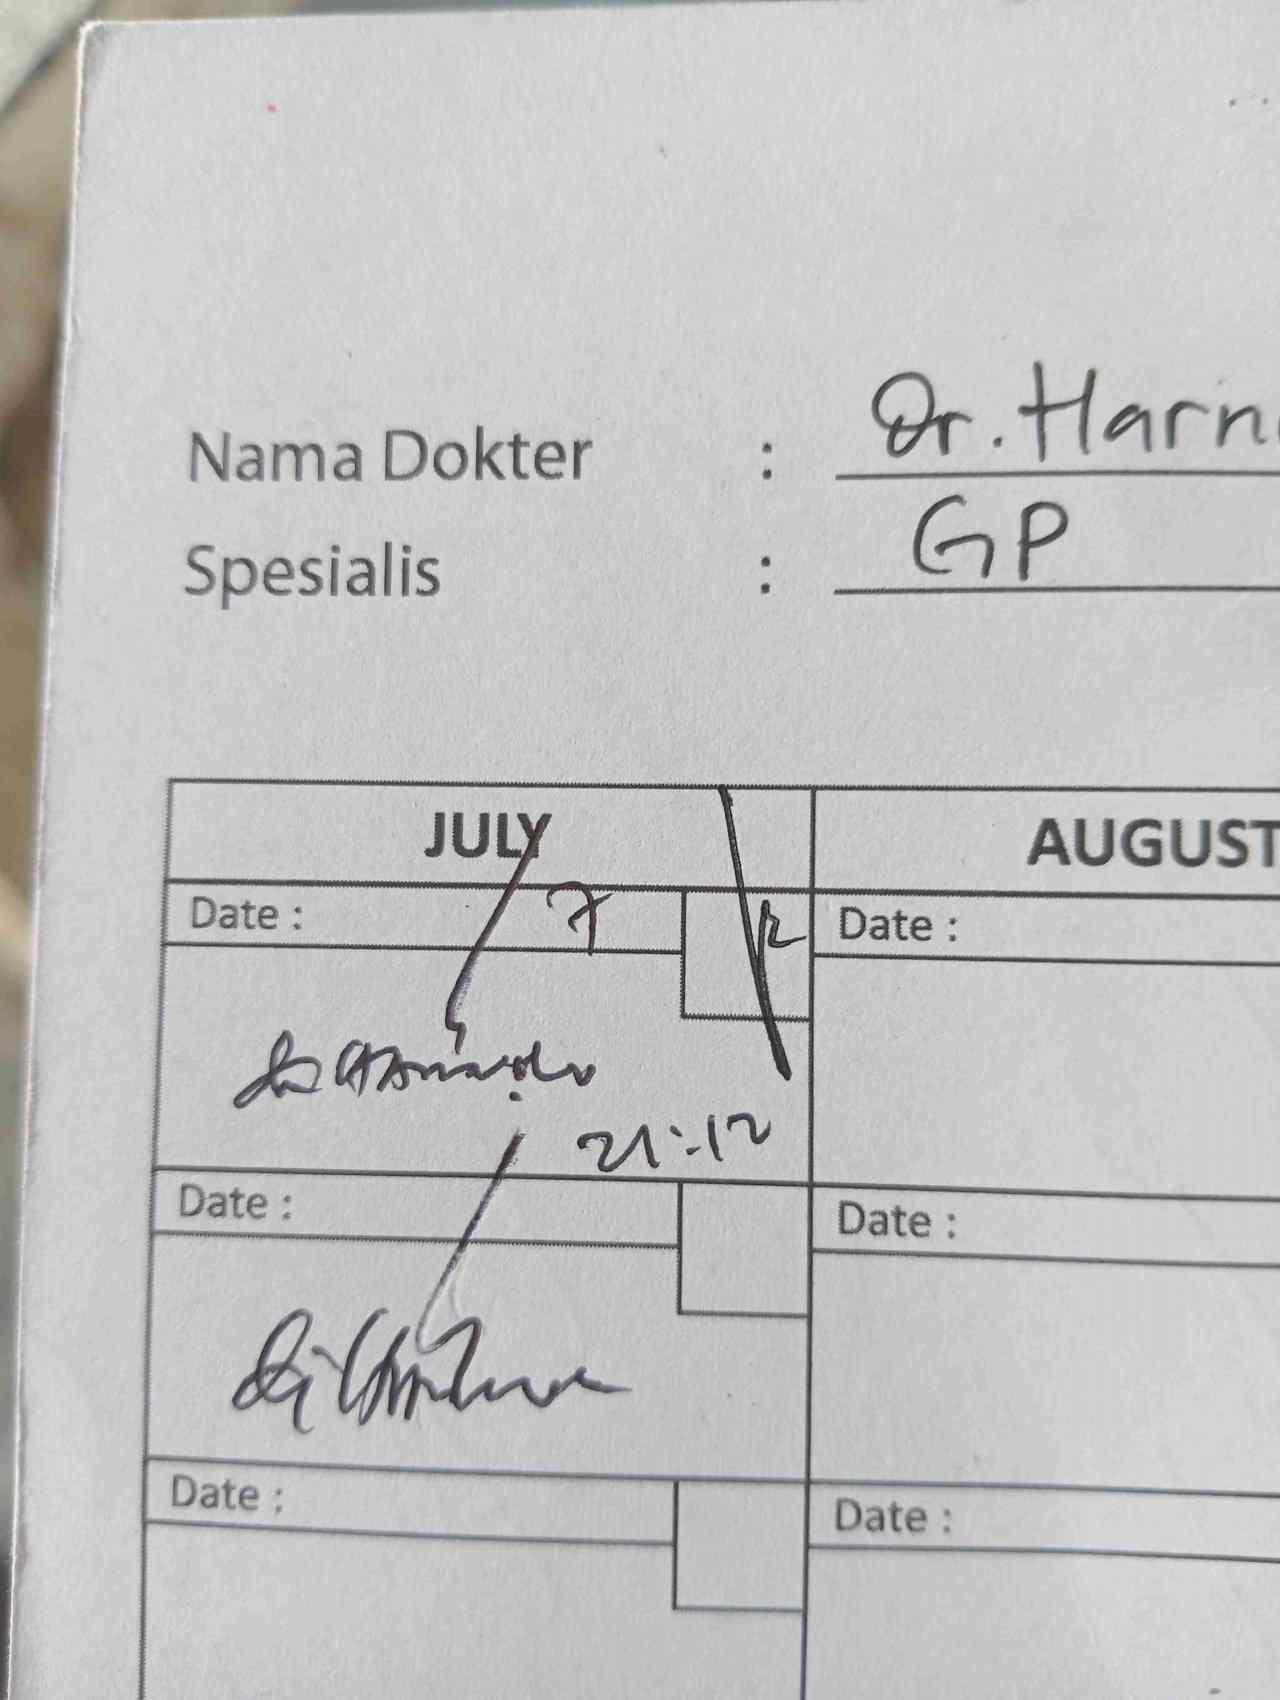 Nama Dokter : Dr. Harni
Spesialis : GP
JULY AUGUST
Date : 7 Date :
21:12
Date : Date :
Date : Date :